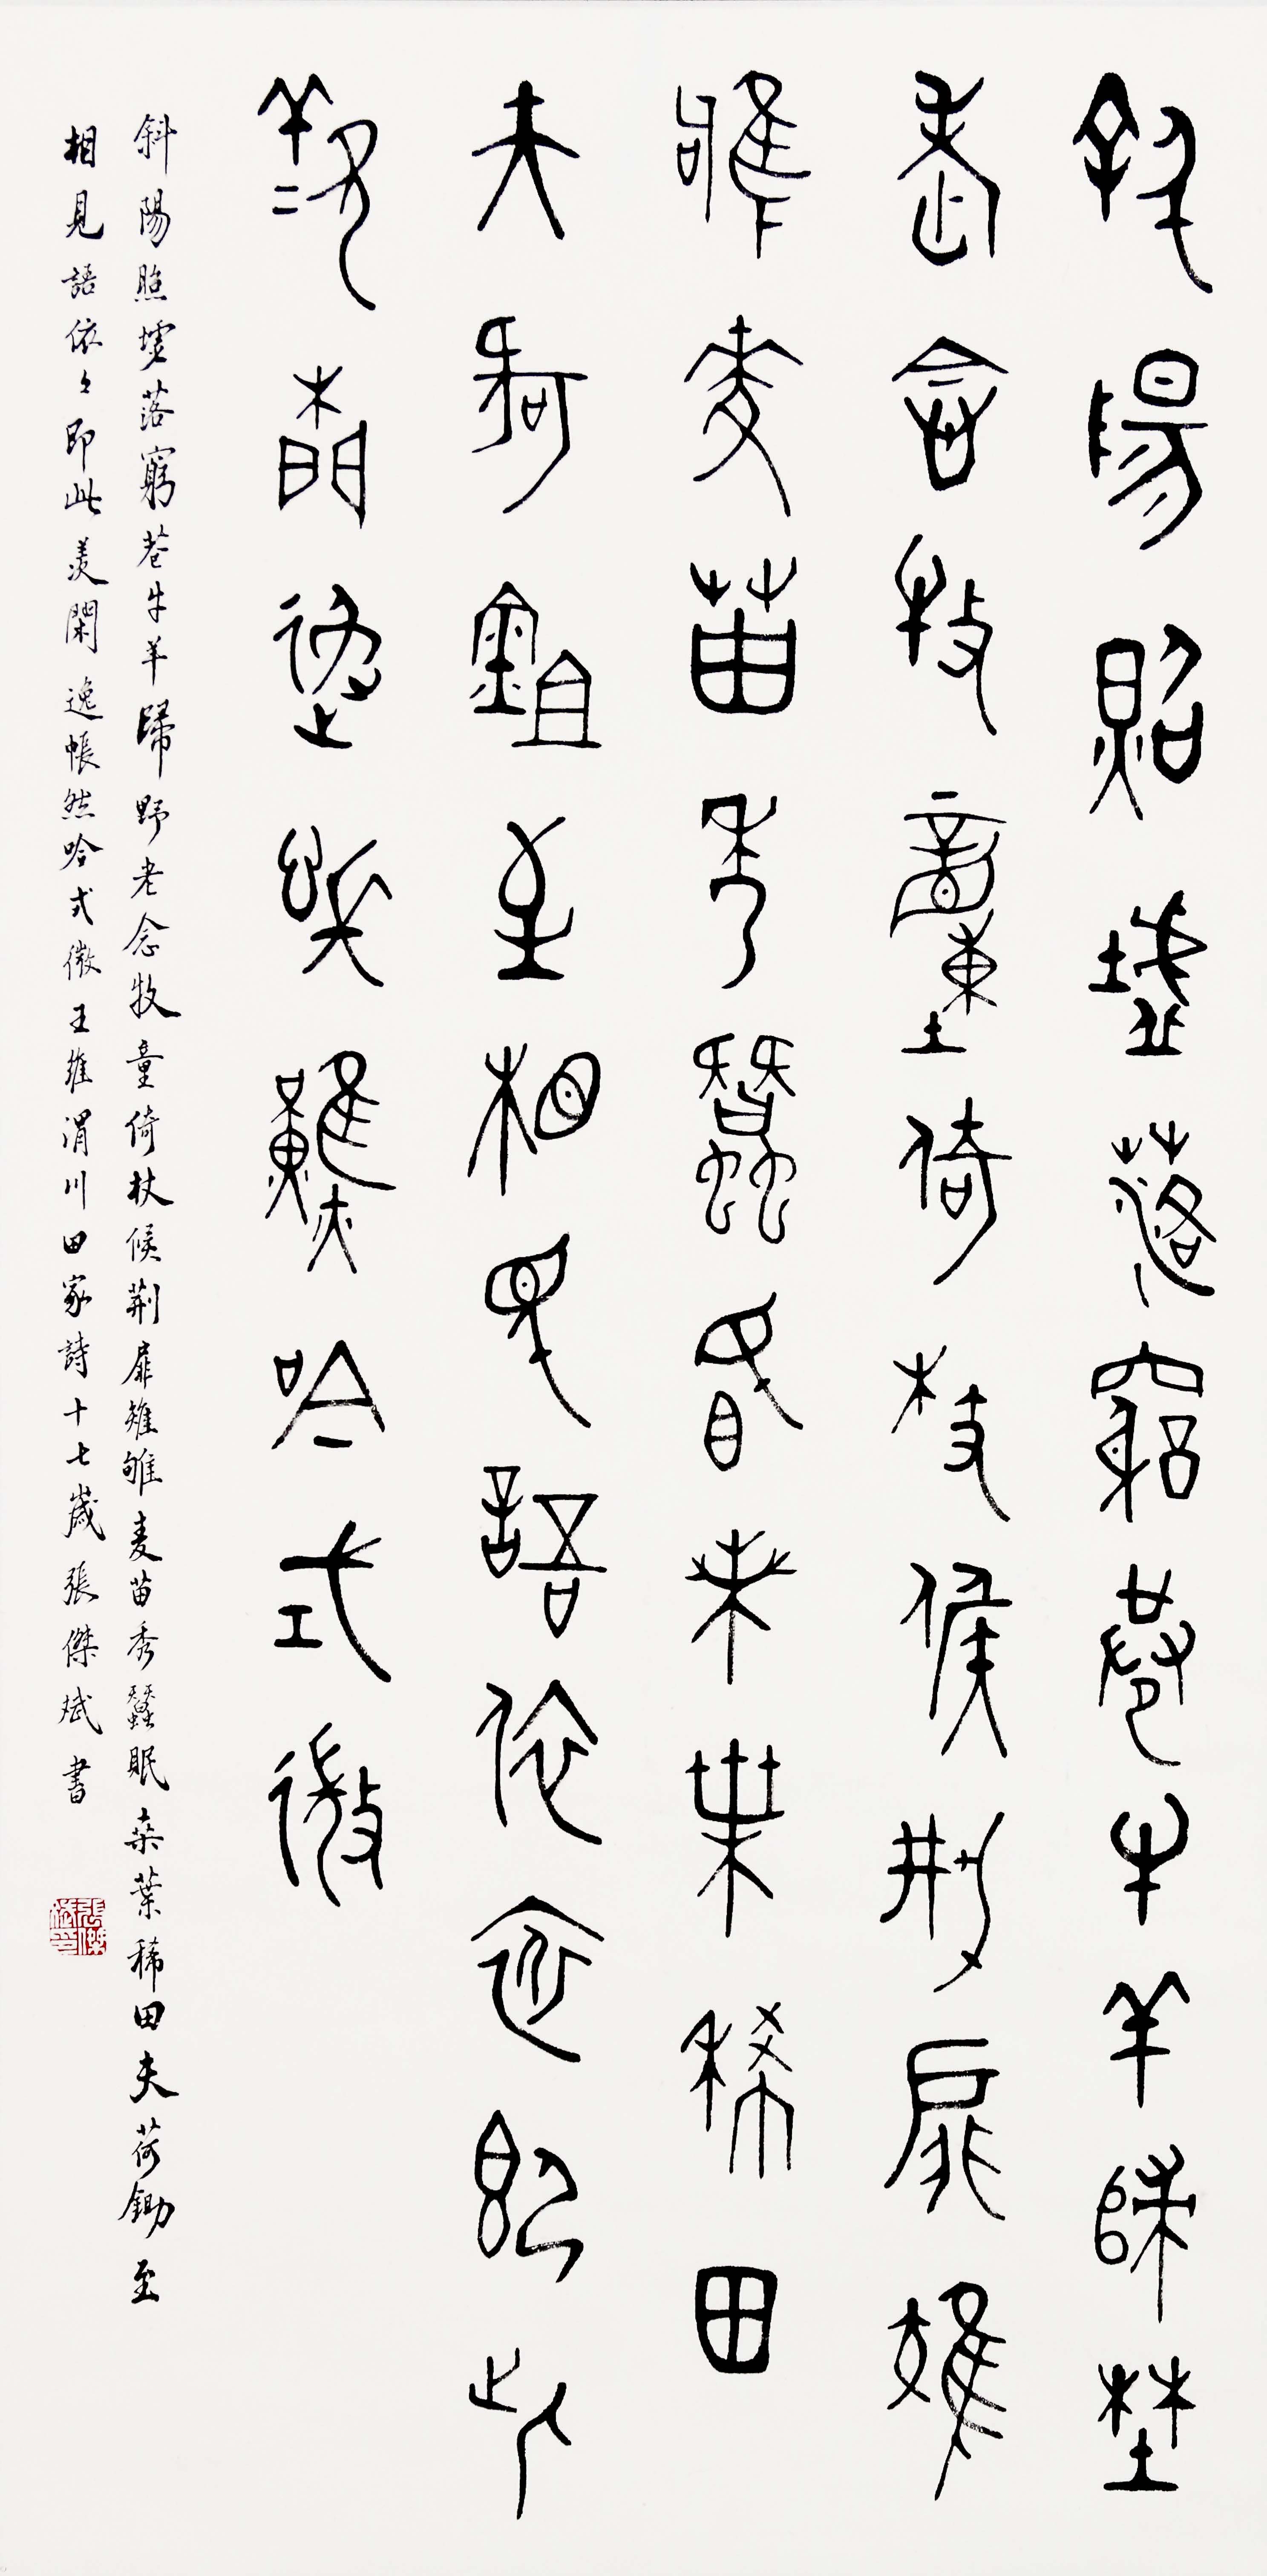 斜陽照墟落窮巷牛羊歸野
老念牧童倚杖候荊扉雉
雊麥苗秀蠶眠桑葉稀田
夫荷鉏至相見語依依即此
羨閑逸悵然吟式微
斜陽照墟落窮巷牛羊歸野老念牧童倚杖候荊扉雉雊麦苗秀蠶眠桑葉稀田夫荷鋤至
相見語依々即此羨閑逸悵然吟式微王維渭川田家詩十七歲張傑斌書
張傑斌印